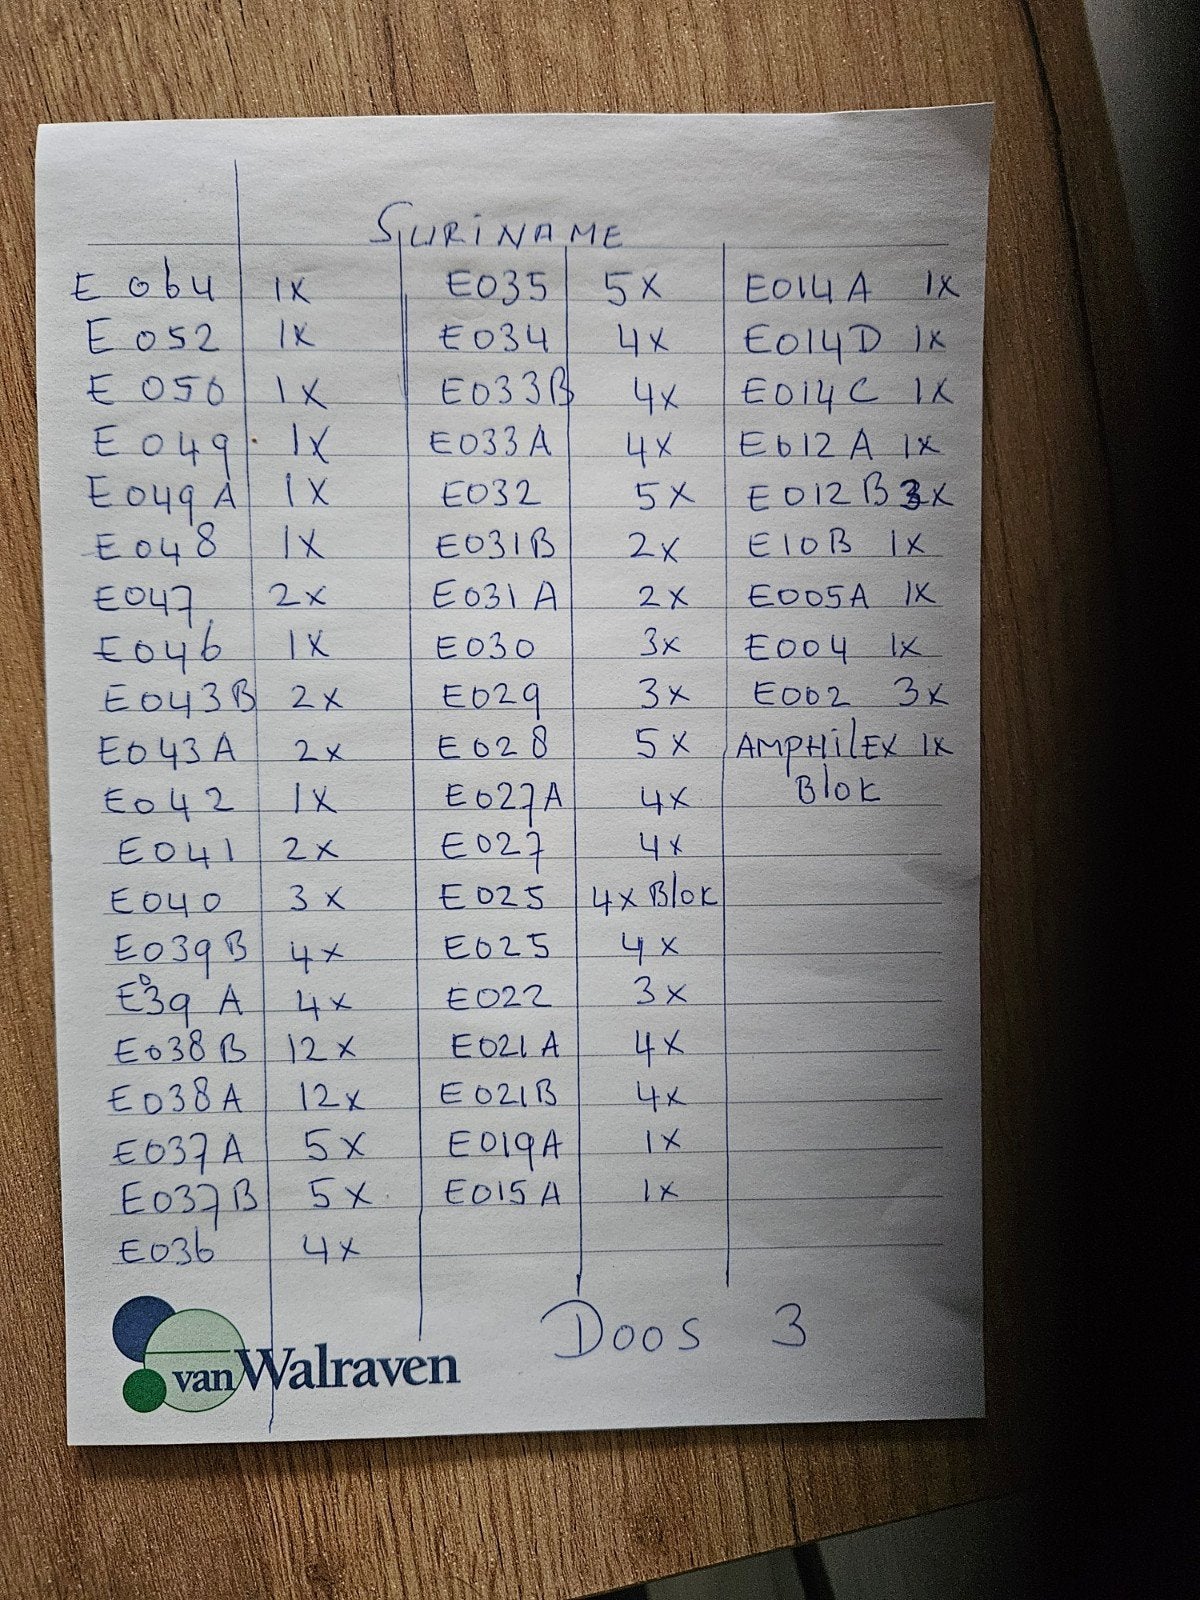 SURINAME
E 064 1x
E 052 1x
E 050 1x
E 049 1x
E049 A 1x
E048 1x
E047 2x
E046 1x
E043B 2x
E043A 2x
E042 1x
E041 2x
E040 3x
E039B 4x
E039 A 4x
E038B 12x
E038A 12x
E037A 5x
E037B 5x
E036 4x
E035 5x
E034 4x
E033B 4x
E033A 4x
E032 5x
E031B 2x
E031A 2x
E030 3x
E029 3x
E028 5x
E027A 4x
E027 4x
E025 4x Blok
E025 4x
E022 3x
E021A 4x
E021B 4x
E019A 1x
E015A 1x
E014A 1x
E014D 1x
E014C 1x
E012A 1x
E012B 3x
E10B 1x
E005A 1x
E004 1x
E002 3x
AMPHILEX 1x
Blok
Doos 3
van Walraven